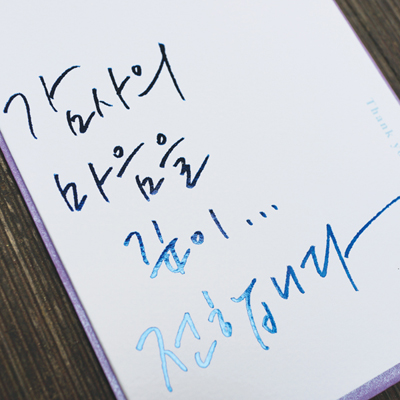 감사의
마음을
깊이...
전합니다
Thank y